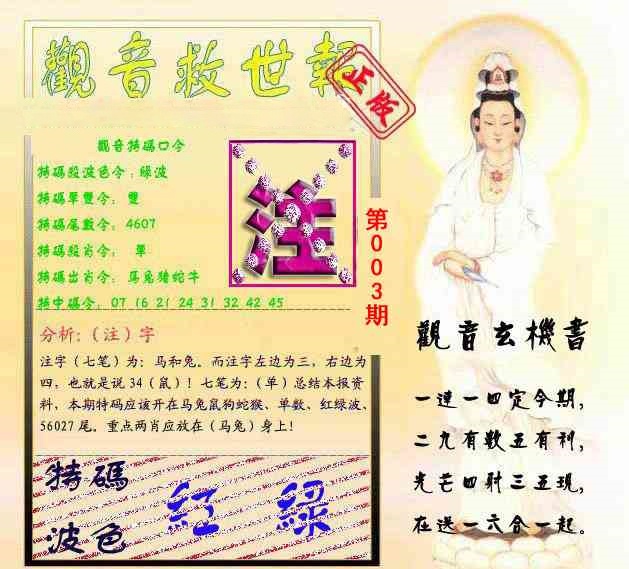 觀音救世報
正版
觀音特碼口令
特碼殺波色令：綠波
特碼單雙令： 雙
特碼尾數令： 4607
特碼殺肖令： 單
特碼出肖令： 馬兔豬蛇牛
特中碼令： 07 16 21 24 31 32 42 45
注
第003期
分析:（注）字
注字（七笔）为：马和兔。而注字左边为三，右边为
四，也就是说 34（鼠）！七笔为:（单）总结本报资
料，本期特码应该开在马兔鼠狗蛇猴、单数、红绿波、
56027 尾。重点两肖应放在（马兔）身上！
特碼
波色
紅 綠
觀音玄機書
一連一四定今期，
二九有數五有利，
光芒四射三五現，
在送一六合一起。